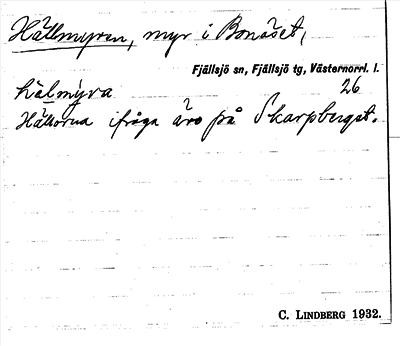 Hällmyren, myr i Bonäset,
Fjällsjö sn, Fjällsjö tg, Västernorrl. l.
hälmýra 26
Hällorna ifråga äro på Skarpberget.
C. LINDBERG 1932.